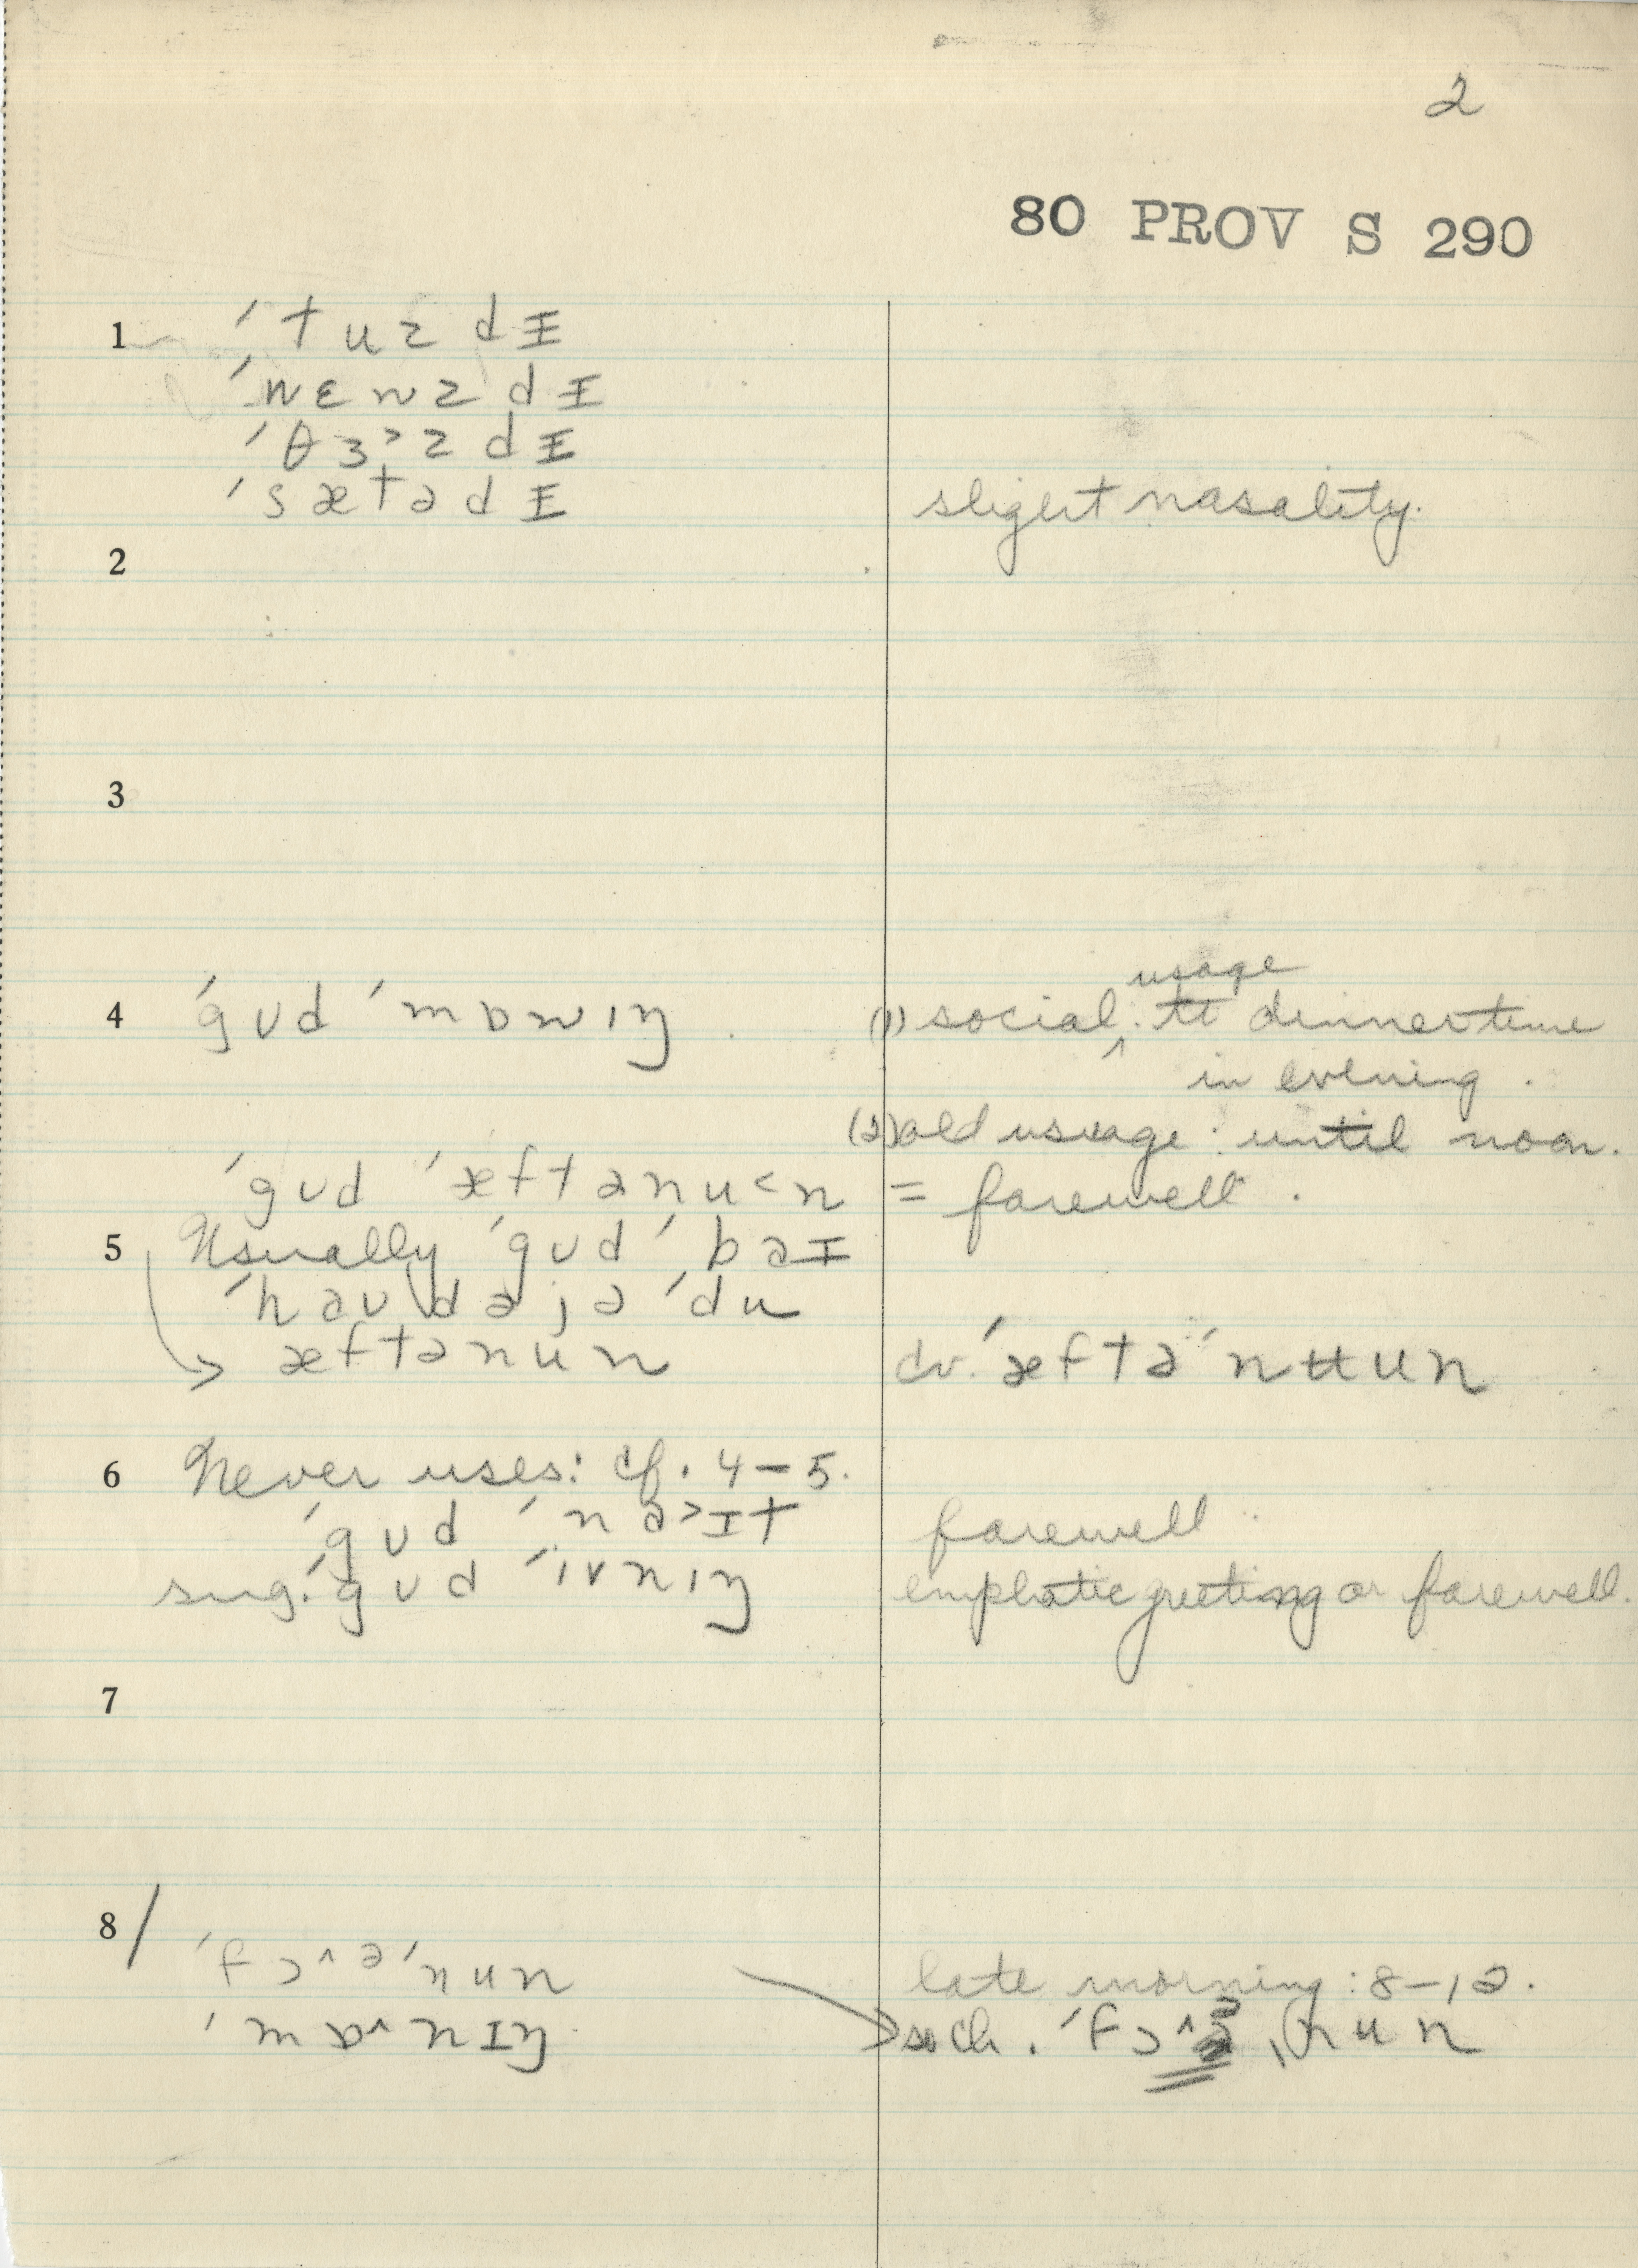 2
80 PROV S 290
1 ˈtuzdᵻ
ˈwɛnzdᵻ
ˈθɜ˃zdᵻ
ˈsætədᵻ slight nasality.
2
3
usage
4 ˈgʊd ˈmɒnɪŋ. (1) social: till dinnertime
in evening.
(2) old usuage: until noon.
ˈgʊd ˈæftənu˂n = farewell.
5 Usually ˈgʊd ˈbaᵻ
ˈhaʊdəjə ˈdu
→ æftənun cv. ˈæftəˈnʉun
6 Never uses: cf. 4–5.
ˈgʊd ˈna˃ɪt farewell
sug. ˈgʊd ˈivnɪŋ emphatic greeting or farewell.
7
8/
ˈfɔ^əˈnun late morning: 8–12.
ˈmɒ^nɪŋ ˈfɔ^ə ˌnun